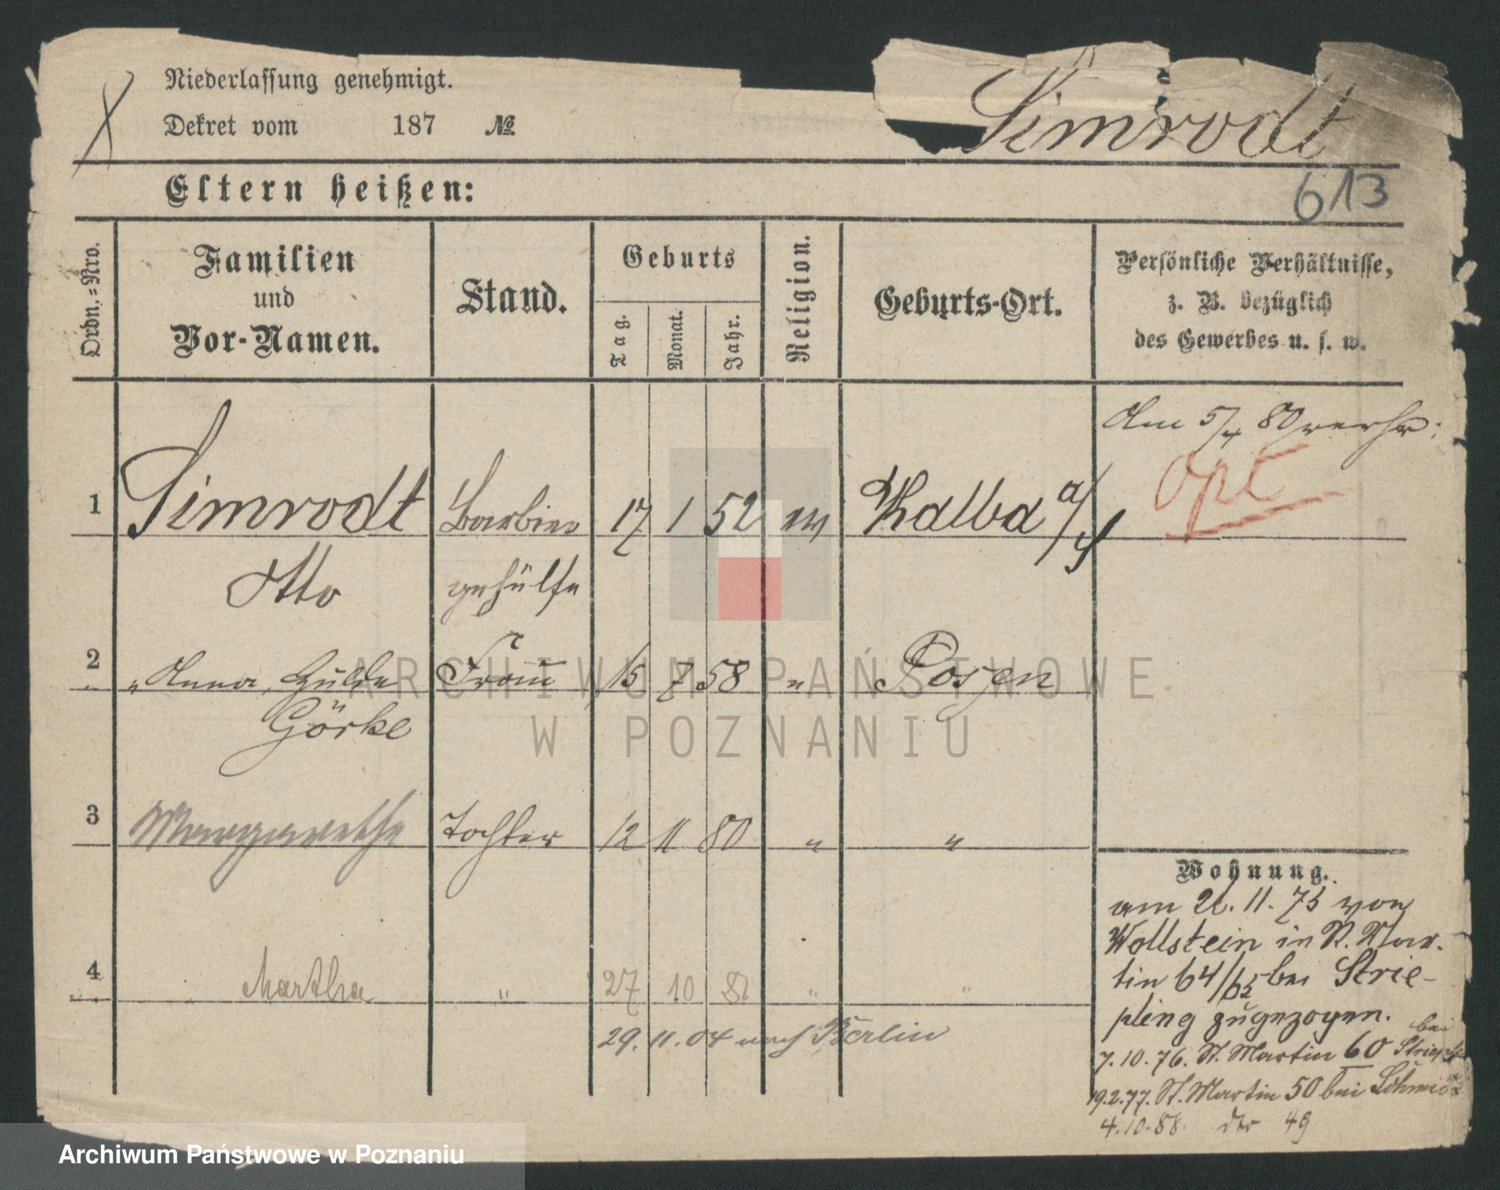 Niederlassung genehmigt.
Dekret vom 187 №
Simrodt
613
Eltern heißen:
Ordn.-Nro.
Familien
und
Vor-Namen.
Stand.
Geburts
Tag.
Monat.
Jahr.
Religion.
Geburts-Ort.
Persönliche Verhältnisse,
z. B. bezüglich
des Gewerbes u. s. w.
Am 5/4 80 verh:
Opt
1 Simrodt Barbier 17 1 52 ev Kalba a/S
Otto gehülfe
2 " Anna, Hulda Frau 15 7 58 " Posen
Görke
3 Margarethe Tochter 12 11 80 " "
4 Martha " 27 10 82 " "
29.11.04 nach Berlin
Wohnung.
am 26.11.75 von
Wollstein in St. Mar-
tin 64/65 bei Strie-
pling zugezogen.
7.10.76. St. Martin 60 bei
19.2.77. St. Martin 50 bei
4.10.88. dto 49
ARCHIWUM PAŃSTWOWE
W POZNANIU
Archiwum Państwowe w Poznaniu